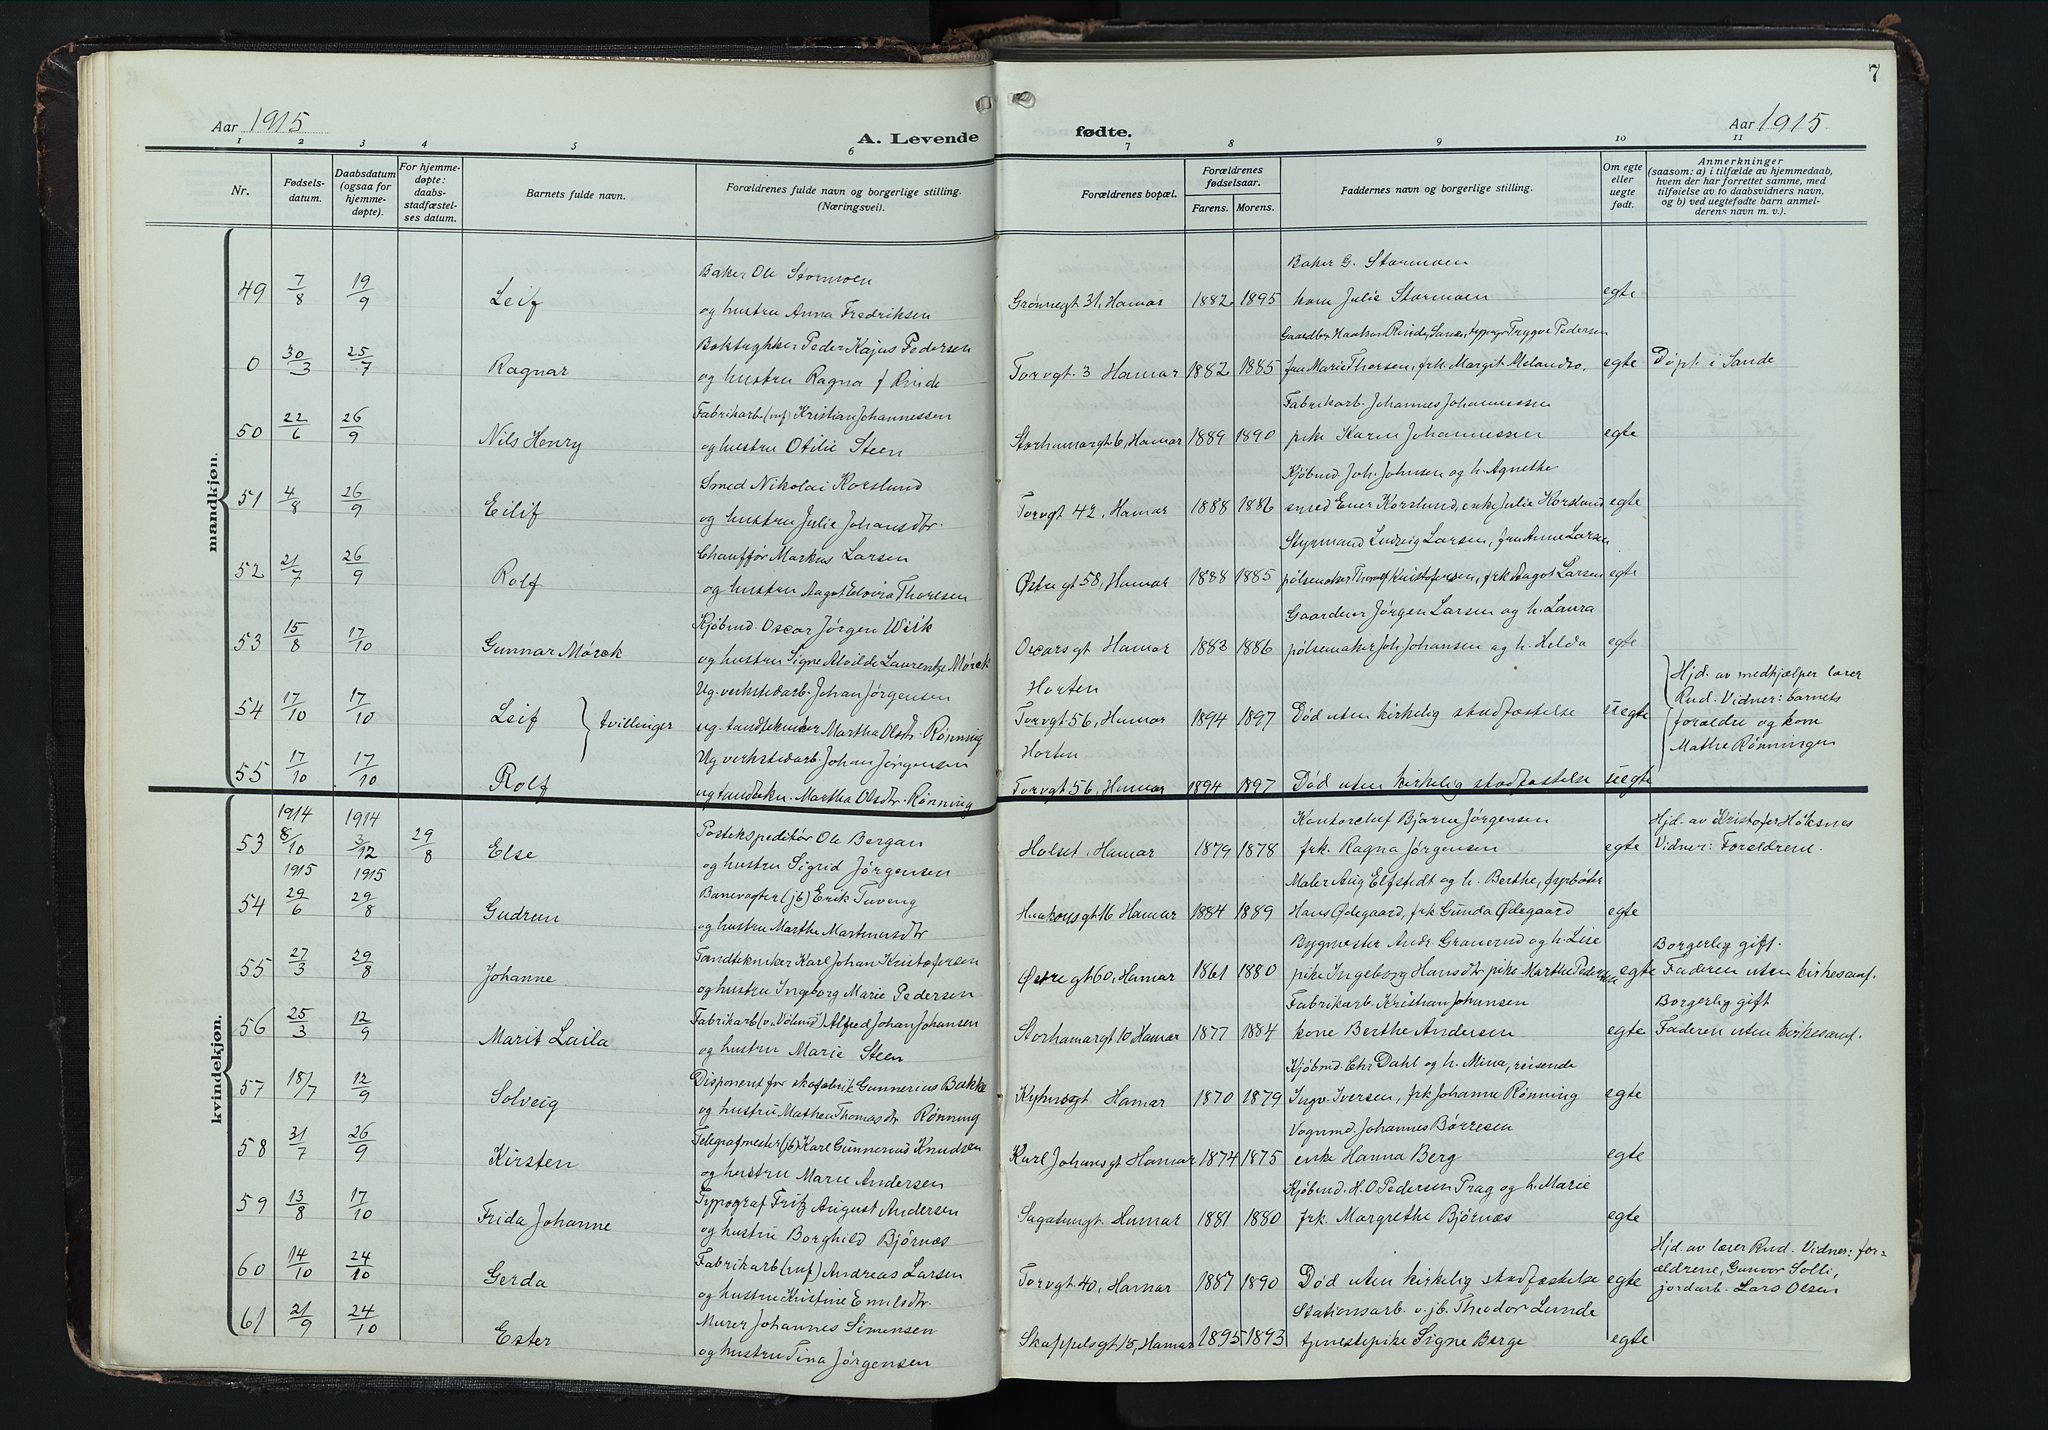 7
Aar 1915
A. Levende
fødte.
Aar 1915.
1 2 3 4 5 6 7 8 9 10 11
Nr.
Fødsels-
datum.
Daabsdatum
(ogsaa for
hjemme-
døpte).
For hjemme-
døpte:
daabs-
stadfæstel-
ses datum.
Barnets fulde navn.
Forældrenes fulde navn og borgerlige stilling.
(Næringsvei).
Forældrenes bopæl.
Forældrenes
fødselsaar.
Farens. Morens.
Faddernes navn og borgerlige stilling.
Om egte
eller
uegte
født.
Anmerkninger
(saasom: a) i tilfælde av hjemmedaab,
hvem der har forrettet samme, med
tilføielse av to daabsvidners navn,
og b) ved uegtefødte barn anmel-
derens navn m. v.).
mandkjøn.
Baker Ole Stormoen Baker G. Stormoen
49 7/8 19/9 Leif og hustru Anna Fredriksen Grønnegt 31, Hamar 1882 1895 kone Julie Stormoen egte
Boktrykker Peder Kajus Pedersen Gaardbr. Haakon Rinde, Sande, typogr Trygve Pedersen
0 30/3 25/7 Ragnar og hustru Ragna f Rinde Torvgt. 3 Hamar 1882 1885 fru Marie Thorsen, frk. Margit Melandsø. egte Døpt i Sande
Fabrikarb. Kristian Johannessen Fabrikarb. Johannes Johannessen
50 22/6 26/9 Nils Henry og hustru Otilie Steen Storhamargt 6, Hamar 1889 1890 pike Karen Johannessen egte
Smed Nikolai Korslund Kjøbmd. Joh. Johnsen og h. Agnethe
51 4/8 26/9 Eilif og hustru Julie Johansdtr. Torvgt 42, Hamar 1888 1886 smed Ener Korslund, enke Julie Korslund egte
Chauffør Markus Larsen Styrmand Ludvig Larsen, fru Anne Larsen
52 21/7 26/9 Rolf og hustru Aagot Elovira Thoresen Østre gt 58, Hamar 1888 1885 pølsemaker Thoralf Kristofersen, frk Aagot Larsen egte
Kjøbmd. Oscar Jørgen Wiik Gaardeier Jørgen Larsen og h. Laura
53 15/8 17/10 Gunnar Mørck og hustru Signe Alvilde Laurentze Mørck Oscarsgt Hamar 1883 1886 pølsemaker Joh Johansen og h. Helda egte
Ug. verkstedarb. Johan Jørgensen Horten
54 17/10 17/10 Leif } tvillinger ug. tandtekniker Martha Olsdtr. Rønning Torvgt 56, Hamar 1894 1897 Død uten kirkelig stadfæstelse uegte
Hjd. av medhjælper lærer
Rud. Vidner: barnets
forældre og kone
Mathe Rønningen
Ug verkstedarb. Johan Jørgensen Horten
55 17/10 17/10 Rolf ug tandtekn. Martha Olsdtr. Rønning Torvgt 56, Hamar 1894 1897 Død uten kirkelig stadfæstelse uegte
kvindekjøn.
1914 1914 Postekspeditør Ole Bergan Kontorchef Bjarne Jørgensen Hjd. av Kristofer Høksnes
53 8/10 3/12 29/8 Else og hustru Sigrid Jørgensen Holset, Hamar 1879 1878 frk. Ragna Jørgensen egte Vidner: Forældrene.
1915 1915 Banevogter (jb) Erik Tuveng Maler Aug Elfstedt og h. Berthe, fyrbøter
54 29/6 29/8 Gudrun og hustru Marthe Martinusdtr Haakonsgt 16 Hamar 1884 1889 Hans Ødegaard, frk Gunda Ødegaard egte
Tandtekniker Karl Johan Kristofersen Bygmester Andr. Granerud og h. Lise Borgerlig gift.
55 27/3 29/8 Johanne og hustru Ingeborg Marie Pedersen Østre gt 60, Hamar 1861 1880 pike Ingeborg Hansdtr pike Marthe Pedersen egte Faderen uten kirkesamf.
Fabrikarb (v. "Vølund") Alfred Johan Johansen Fabrikarb. Kristian Johansen Borgerlig gift
56 25/3 12/9 Marit Laila og hustru Marie Steen Storhamargt 10 Hamar 1877 1884 kone Berthe Andersen egte Faderen uten kirkesamf.
Disponent for skofabrik Gunnerius Bakke Kjøbmd. Chr Dahl og h. Mina, reisende
57 18/7 12/9 Solveig og hustru Mathea Thomasdtr Rønning Hamar 1870 1879 Ingv Iversen, frk Johanne Rønning egte
Telegrafmester (jb) Karl Gunnerius Knudsen Vognmd. Johannes Børresen
58 31/7 26/9 Kirsten og hustru Marie Andersen Karl Johansgt Hamar 1874 1875 enke Hanna Berg egte
Typograf Fritz August Andersen Kjøbmd. H. O. Pedersen Prag og h. Marie
59 13/8 17/10 Frida Johanne og hustru Borghild Bjørnæs Sagatungt. Hamar 1881 1880 frk. Margrethe Bjørnæs egte
Fabrikarb Andreas Larsen
60 14/10 24/10 Gerda og hustru Kristine Emilsdtr Torvgt 40, Hamar 1887 1890 Død uten kirkelig stadfæstelse egte
Hjd. av lærer Rud. Vidner: for-
ældrene, Gunvor Solli,
jordarb. Lars Olsen
Murer Johannes Simensen Stationsarb. v. jb. Theodor Lunde
61 21/9 24/10 Ester og hustru Tina Jørgensen Skappelsgt 15, Hamar 1895 1893 tjenestepike Signe Berge egte